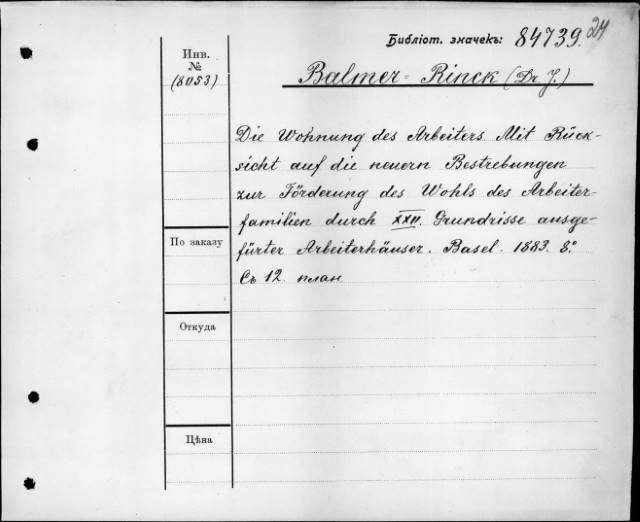 Библіот. значекъ: 84739. 24
Инв.
№
(8053)
Balmer-Rinck (Dr. J.)
Die Wohnung des Arbeiters. Mit Rück-
sicht auf die neuern Bestrebungen
zur Förderung des Wohls des Arbeiter-
familien durch XXII. Grundrisse ausge-
fürter Arbeiterhäuser. Basel. 1883. 8°.
Съ 12. план
По заказу
Откуда
Цѣна